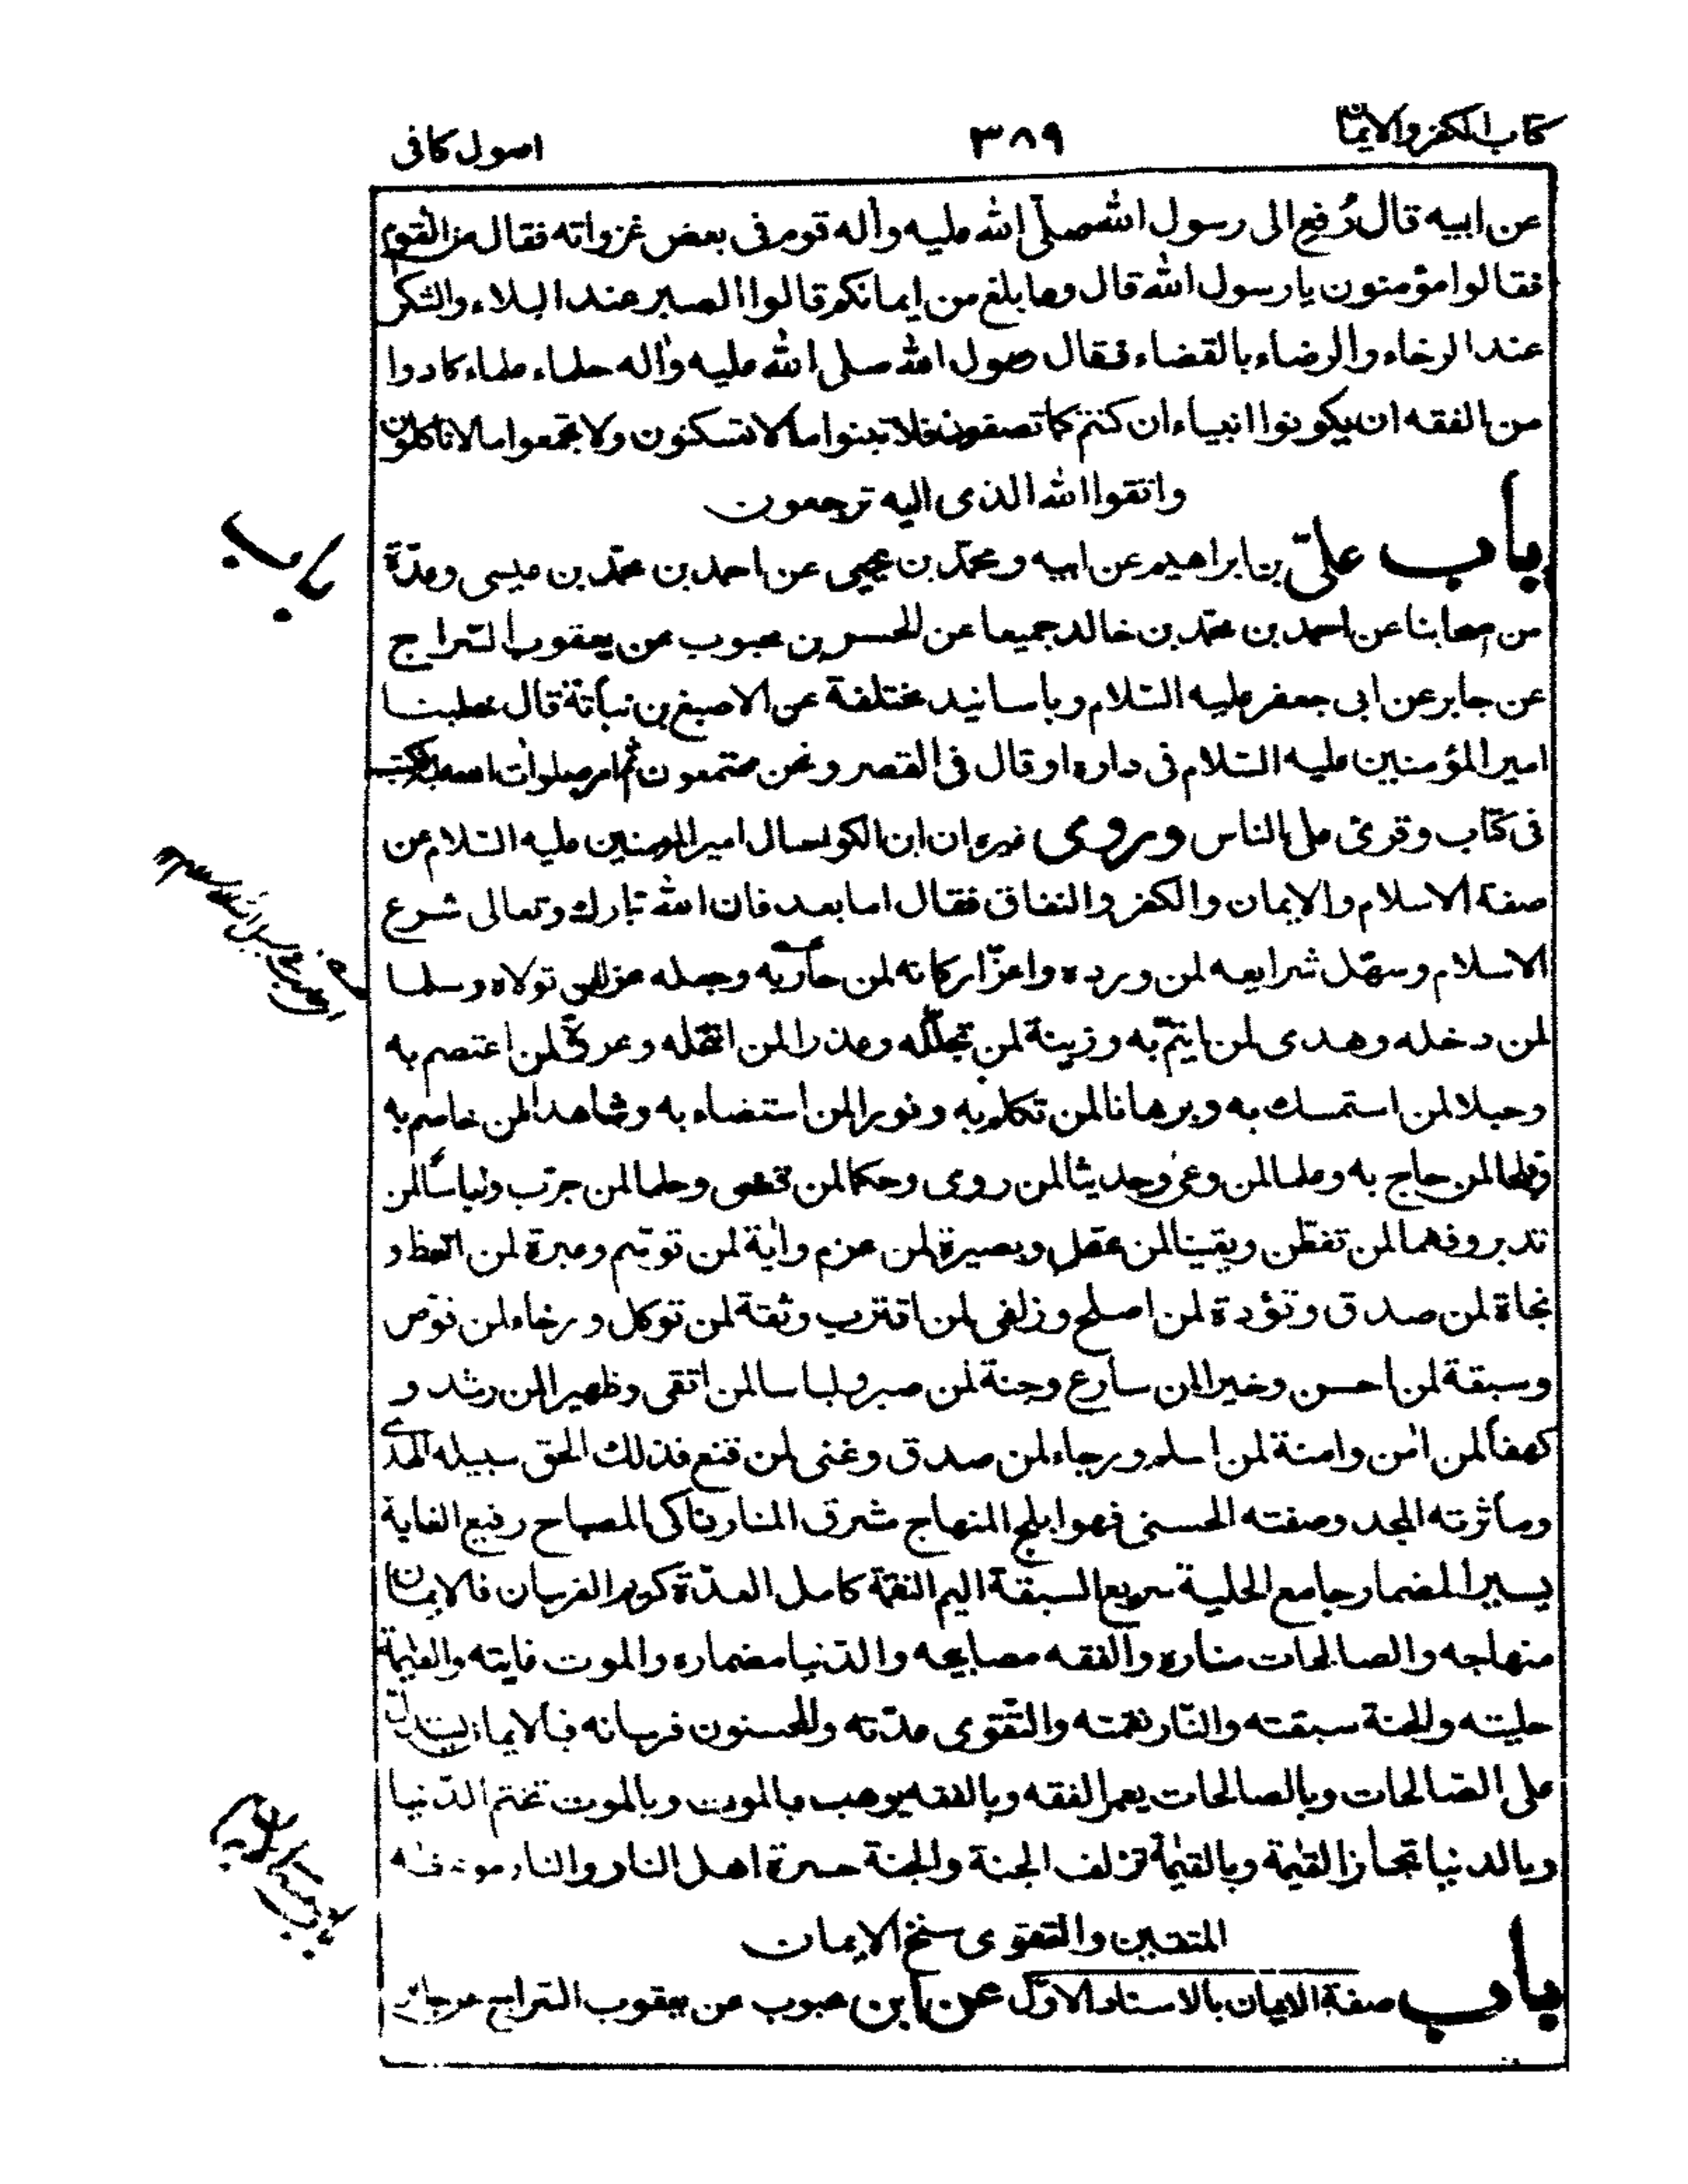 كتاب الكفر والايمان ٣٨٩ اصول كافى
عن ابيه قال رُفع الى رسول الله صلّى الله عليه وآله قوم فى بعض غزواته فقال من القوم
فقالوا مؤمنون يا رسول الله قال وما بلغ من ايمانكم قالوا الصبر عند البلاء والشكر
عند الرخاء والرضاء بالقضاء فقال رسول الله صلى الله عليه وآله حلماء علماء كادوا
من الفقه ان يكونوا انبياء ان كنتم كما تصفون فلا تبنوا ما لا تسكنون ولا تجمعوا ما لا تاكلون
واتقوا الله الذى اليه ترجعون
باب علىّ بن ابراهيم عن ابيه ومحمّد بن يحيى عن احمد بن محمّد بن عيسى وعدّة
من اصحابنا عن احمد بن محمّد بن خالد جميعا عن الحسن بن محبوب عن يعقوب السّراج
عن جابر عن ابى جعفر عليه السّلام وباسانيد مختلفة عن الاصبغ بن نباتة قال خطبنا
امير المؤمنين عليه السّلام فى داره او قال فى القصر ونحن مجتمعون ثم امر صلوات الله عليه فكتب
فى كتاب وقرئ على الناس وروى غيره ان ابن الكوا سال امير المؤمنين عليه السّلام عن
صفة الاسلام والايمان والكفر والنفاق فقال اما بعد فان الله تبارك وتعالى شرع
الاسلام وسهّل شرايعه لمن ورده واعزّ اركانه لمن حاربه وجعله عزا لمن تولاه وسلما
لمن دخله وهدى لمن ايتمّ به وزينة لمن تجلّله وعذرا لمن انتحله وعروة لمن اعتصم به
وحبلا لمن استمسك به وبرهانا لمن تكلم به ونورا لمن استضاء به وشاهدا لمن خاصم به
وفلجا لمن حاج به وعلما لمن وعى وحديثا لمن روى وحكما لمن قضى وحلما لمن جرّب ولباسًا لمن
تدبر وفهما لمن تفطّن ويقينا لمن عقل وبصيرة لمن عزم وآية لمن توسّم وعبرة لمن اتعظ و
نجاة لمن صدق وتؤدة لمن اصلح وزلفى لمن اقترب وثقة لمن توكل ورخاء لمن فوّض
وسبقة لمن احسن وخيرا لمن سارع وجنة لمن صبر ولباسا لمن اتقى وظهيرا لمن رشد و
كهفاً لمن آمن وامنة لمن اسلم ورجاء لمن صدق وغنى لمن قنع فذلك الحق سبيله الهدى
ومأثرته المجد وصفته الحسنى فهو ابلج المنهاج مشرق المنار ذاكى المصباح رفيع الغاية
يسير المضمار جامع الحلية سريع السبقة اليم النقمة كامل العدّة كريم الفرسان فالايمان
منهاجه والصالحات مناره والفقه مصابيحه والدّنيا مضماره والموت غايته والقيٰمة
حليته والجنة سبقته والنّار نقمته والتّقوى عدّته والمحسنون فرسانه فبالايمان يستدلّ
على الصّالحات وبالصالحات يعمر الفقه وبالفقه يرهب الموت وبالموت تختم الدّنيا
وبالدنيا تجاز القيٰمة وبالقيٰمة تزلف الجنة والجنة حسرة اهل النار والنار موعظة
المتقين والتقوى سنخ الايمان
باب صفة الايمان بالاسناد الاوّل عن ابن محبوب عن يعقوب السّراج عن جابر
باب